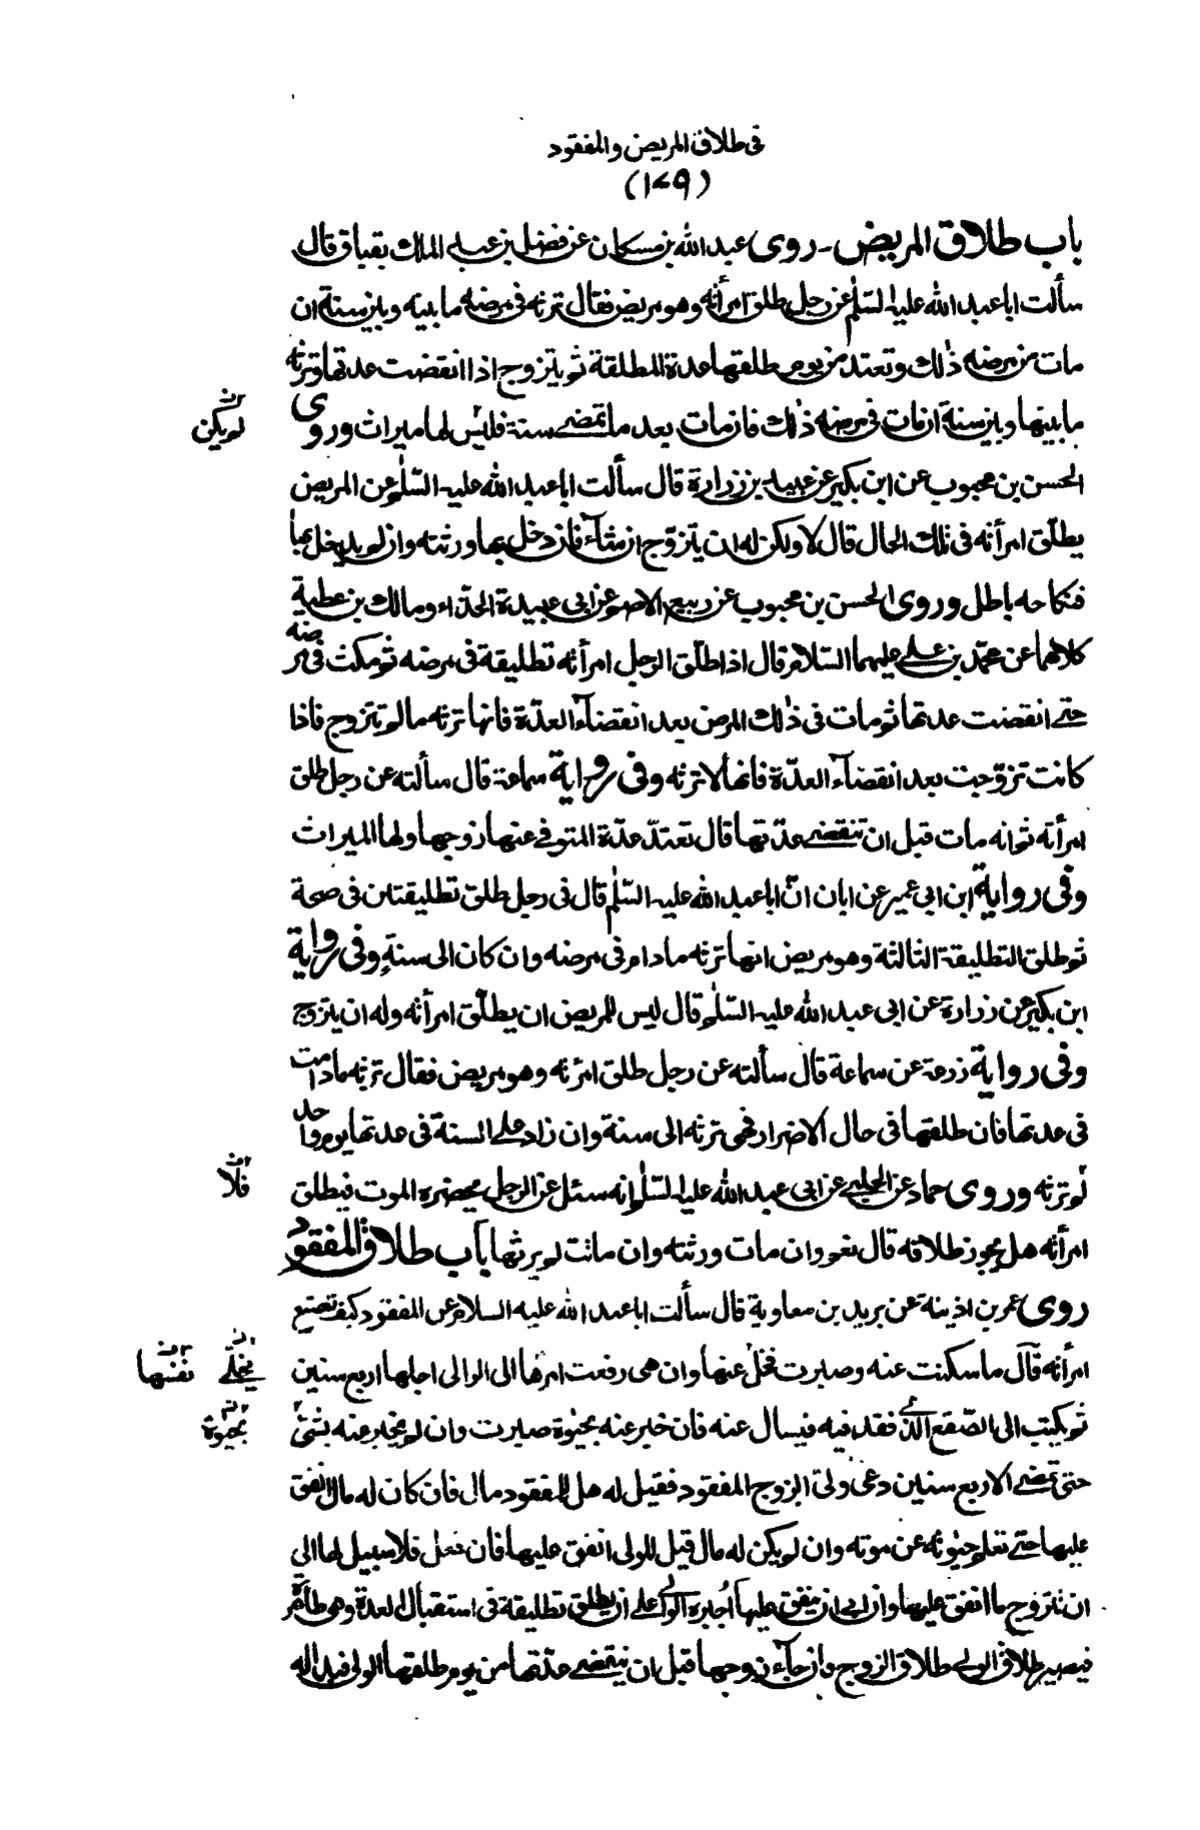 فى طلاق المريض والمفقود
(١٧٩)
باب طلاق المريض - روى عبد الله بن مسكان عن فضل بن عبد الملك بقباق قال
سألت ابا عبد الله عليه السلم عن رجل طلق امرأته وهو مريض فقال ترثه فى مرضه ما بينه وبين سنة ان
مات من مرضه ذلك وتعتد من يوم طلقها عدة المطلقة ثم يتزوج اذا انقضت عدتها وترثه
ما بينها وبين سنة ان مات فى مرضه ذلك فان مات بعد ما تمضى سنة فليس لها ميراث وروى
لم يكن
الحسن بن محبوب عن ابن بكير عن عبيد بن زرارة قال سألت ابا عبد الله عليه السّلم عن المريض
يطلّق امرأته فى تلك الحال قال لا ولكن له ان يتزوّج ان شآء فان دخل بها ورثته وان لم يدخل بها
فنكاحه باطل وروى الحسن بن محبوب عن ربيع الاصم عن ابى عبيدة الحذاء ومالك بن عطية
كلاهما عن محمّد بن على عليهما السّلام قال اذا طلّق الرجل امرأته تطليقة فى مرضه ثم مكث فى مرضه
حتى انقضت عدتها ثم مات فى ذلك المرض بعد انقضآء العدّة فانها ترثه ما لم تتزوج فاذا
كانت تزوّجت بعد انقضآء العدّة فانها لا ترثه وفى رواية سماعة قال سألته عن رجل طلق
امرأته ثم انه مات قبل ان تنقضى عدّتها قال تعتدّ عدّة المتوفى عنها زوجها ولها الميراث
وفى رواية ابن ابى عمير عن ابان انّ ابا عبد الله عليه السّلم قال فى رجل طلق تطليقتين فى صحة
ثم طلق التطليقة الثالثة وهو مريض انها ترثه ما دام فى مرضه وان كان الى سنة وفى رواية
ابن بكير عن زرارة عن ابى عبد الله عليه السّلم قال ليس للمريض ان يطلّق امرأته وله ان يتزوج
وفى رواية زرعة عن سماعة قال سألته عن رجل طلق امرئته وهو مريض فقال ترثه ما دامت
فى عدتها فان طلقها فى حال الاضرار فهى ترثه الى سنة وان زاد على السنة فى عدتها يوم واحد
لم ترثه وروى حماد عن الحلبى عن ابى عبد الله عليه السّلم انه سئل عن الرجل يحضره الموت فيطلق
فلا
امرأته هل يجوز طلاقه قال نعم وان مات ورثته وان ماتت لم يرثها باب طلاق المفقود
روى عمر بن اذينة عن بريد بن معاوية قال سألت ابا عبد الله عليه السلام عن المفقود كيف تصنع
امرأته قال ما سكتت عنه وصبرت فخل عنها وان هى رفعت امرها الى الوالى اجلها اربع سنين
يخلّى نفسها
ثم يكتب الى الصّقع الذى فقد فيه فيسال عنه فان خبر عنه بحيوة صبرت وان لم يخبر عنه بشئ
بحيوة
حتى تمضى الاربع سنين دعى ولىّ الزوج المفقود فقيل له هل للمفقود مال فان كان له مال انفق
عليها حتى تعلم حيوته عن موته وان لم يكن له مال قيل للولى انفق عليها فان فعل فلا سبيل لها الى
ان تتزوج ما انفق عليها وان ابى ان ينفق عليها اجبره الوالى على ان يطلق تطليقة فى استقبال العدة وهى طاهرة
فيصير طلاق الولى طلاق الزوج فان جآء زوجها قبل ان تنقضى عدّتها من يوم طلقها الولى فبدا له